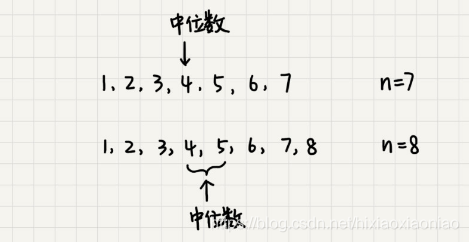 中位数
1, 2, 3, 4, 5, 6, 7 n=7
1, 2, 3, 4, 5, 6, 7, 8 n=8
中位数
https://blog.csdn.net/hixiaoxiaoniao